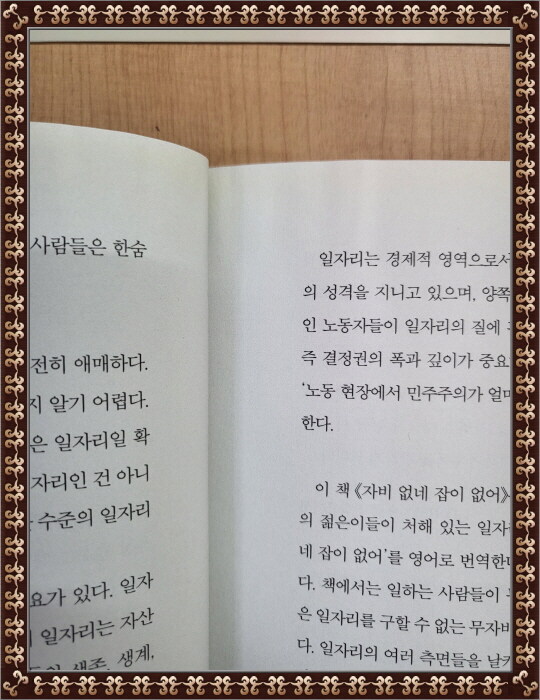 사람들은 한숨
전히 애매하다.
지 알기 어렵다.
은 일자리일 확
자리인 건 아니
수준의 일자리
요가 있다. 일자
일자리는 자산
생존, 생계,
일자리는 경제적 영역으로서
의 성격을 지니고 있으며, 양쪽
인 노동자들이 일자리의 질에
즉 결정권의 폭과 깊이가 중요
‘노동 현장에서 민주주의가 얼마
한다.
이 책 《자비 없네 잡이 없어》
의 젊은이들이 처해 있는 일자
네 잡이 없어’를 영어로 번역한
다. 책에서는 일하는 사람들이
은 일자리를 구할 수 없는 무자비
다. 일자리의 여러 측면들을 날카